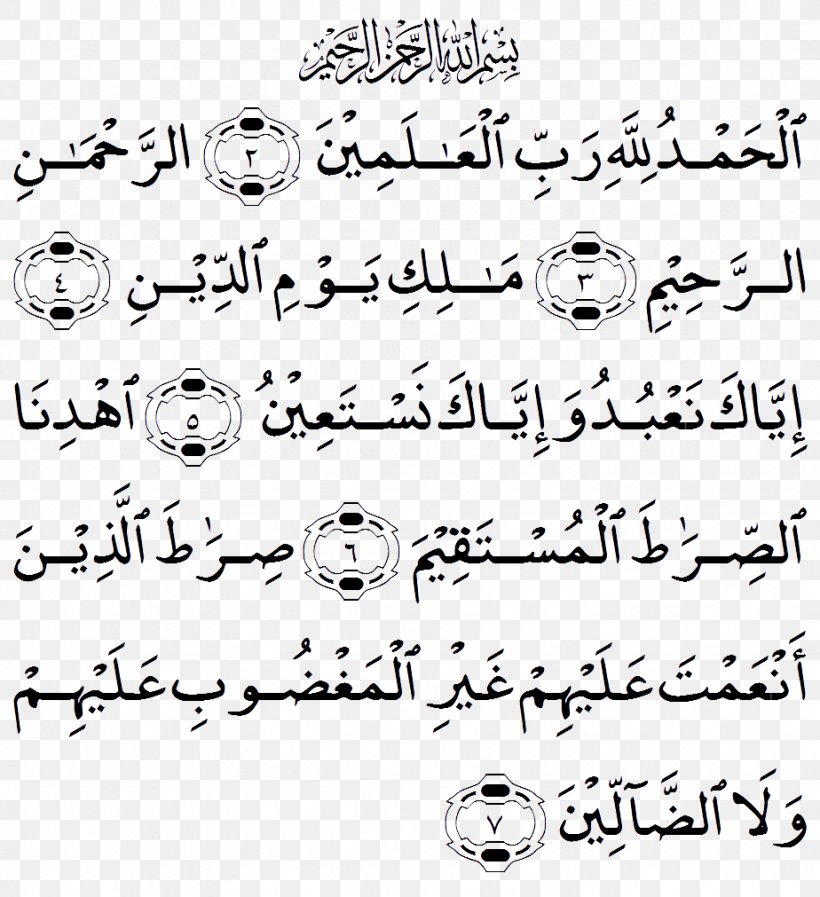 بِسْمِ اللَّهِ الرَّحْمَنِ الرَّحِيمِ
ٱلْحَمْـدُ لِلَّهِ رَبِّ ٱلْعَـٰلَمِيْنَ ٢ الرَّحْمَـٰنِ
الـرَّحِيْمِ ٣ مَـٰلِكِ يَـوْمِ ٱلدِّيْـنِ ٤
إِيَّاكَ نَعْبُـدُ وَ إِيَّـاكَ نَسْـتَعِيْنُ ٥ ٱهْدِنَا
ٱلصِّـرَٰطَ ٱلْمُسْـتَقِيْمَ ٦ صِـرَٰطَ ٱلَّذِيْـنَ
أَنْعَمْتَ عَلَيْهِمْ غَيْرِ ٱلْمَغْضُـوبِ عَلَيْهِـمْ
وَلَا ٱلضَّآلِّيْنَ ٧